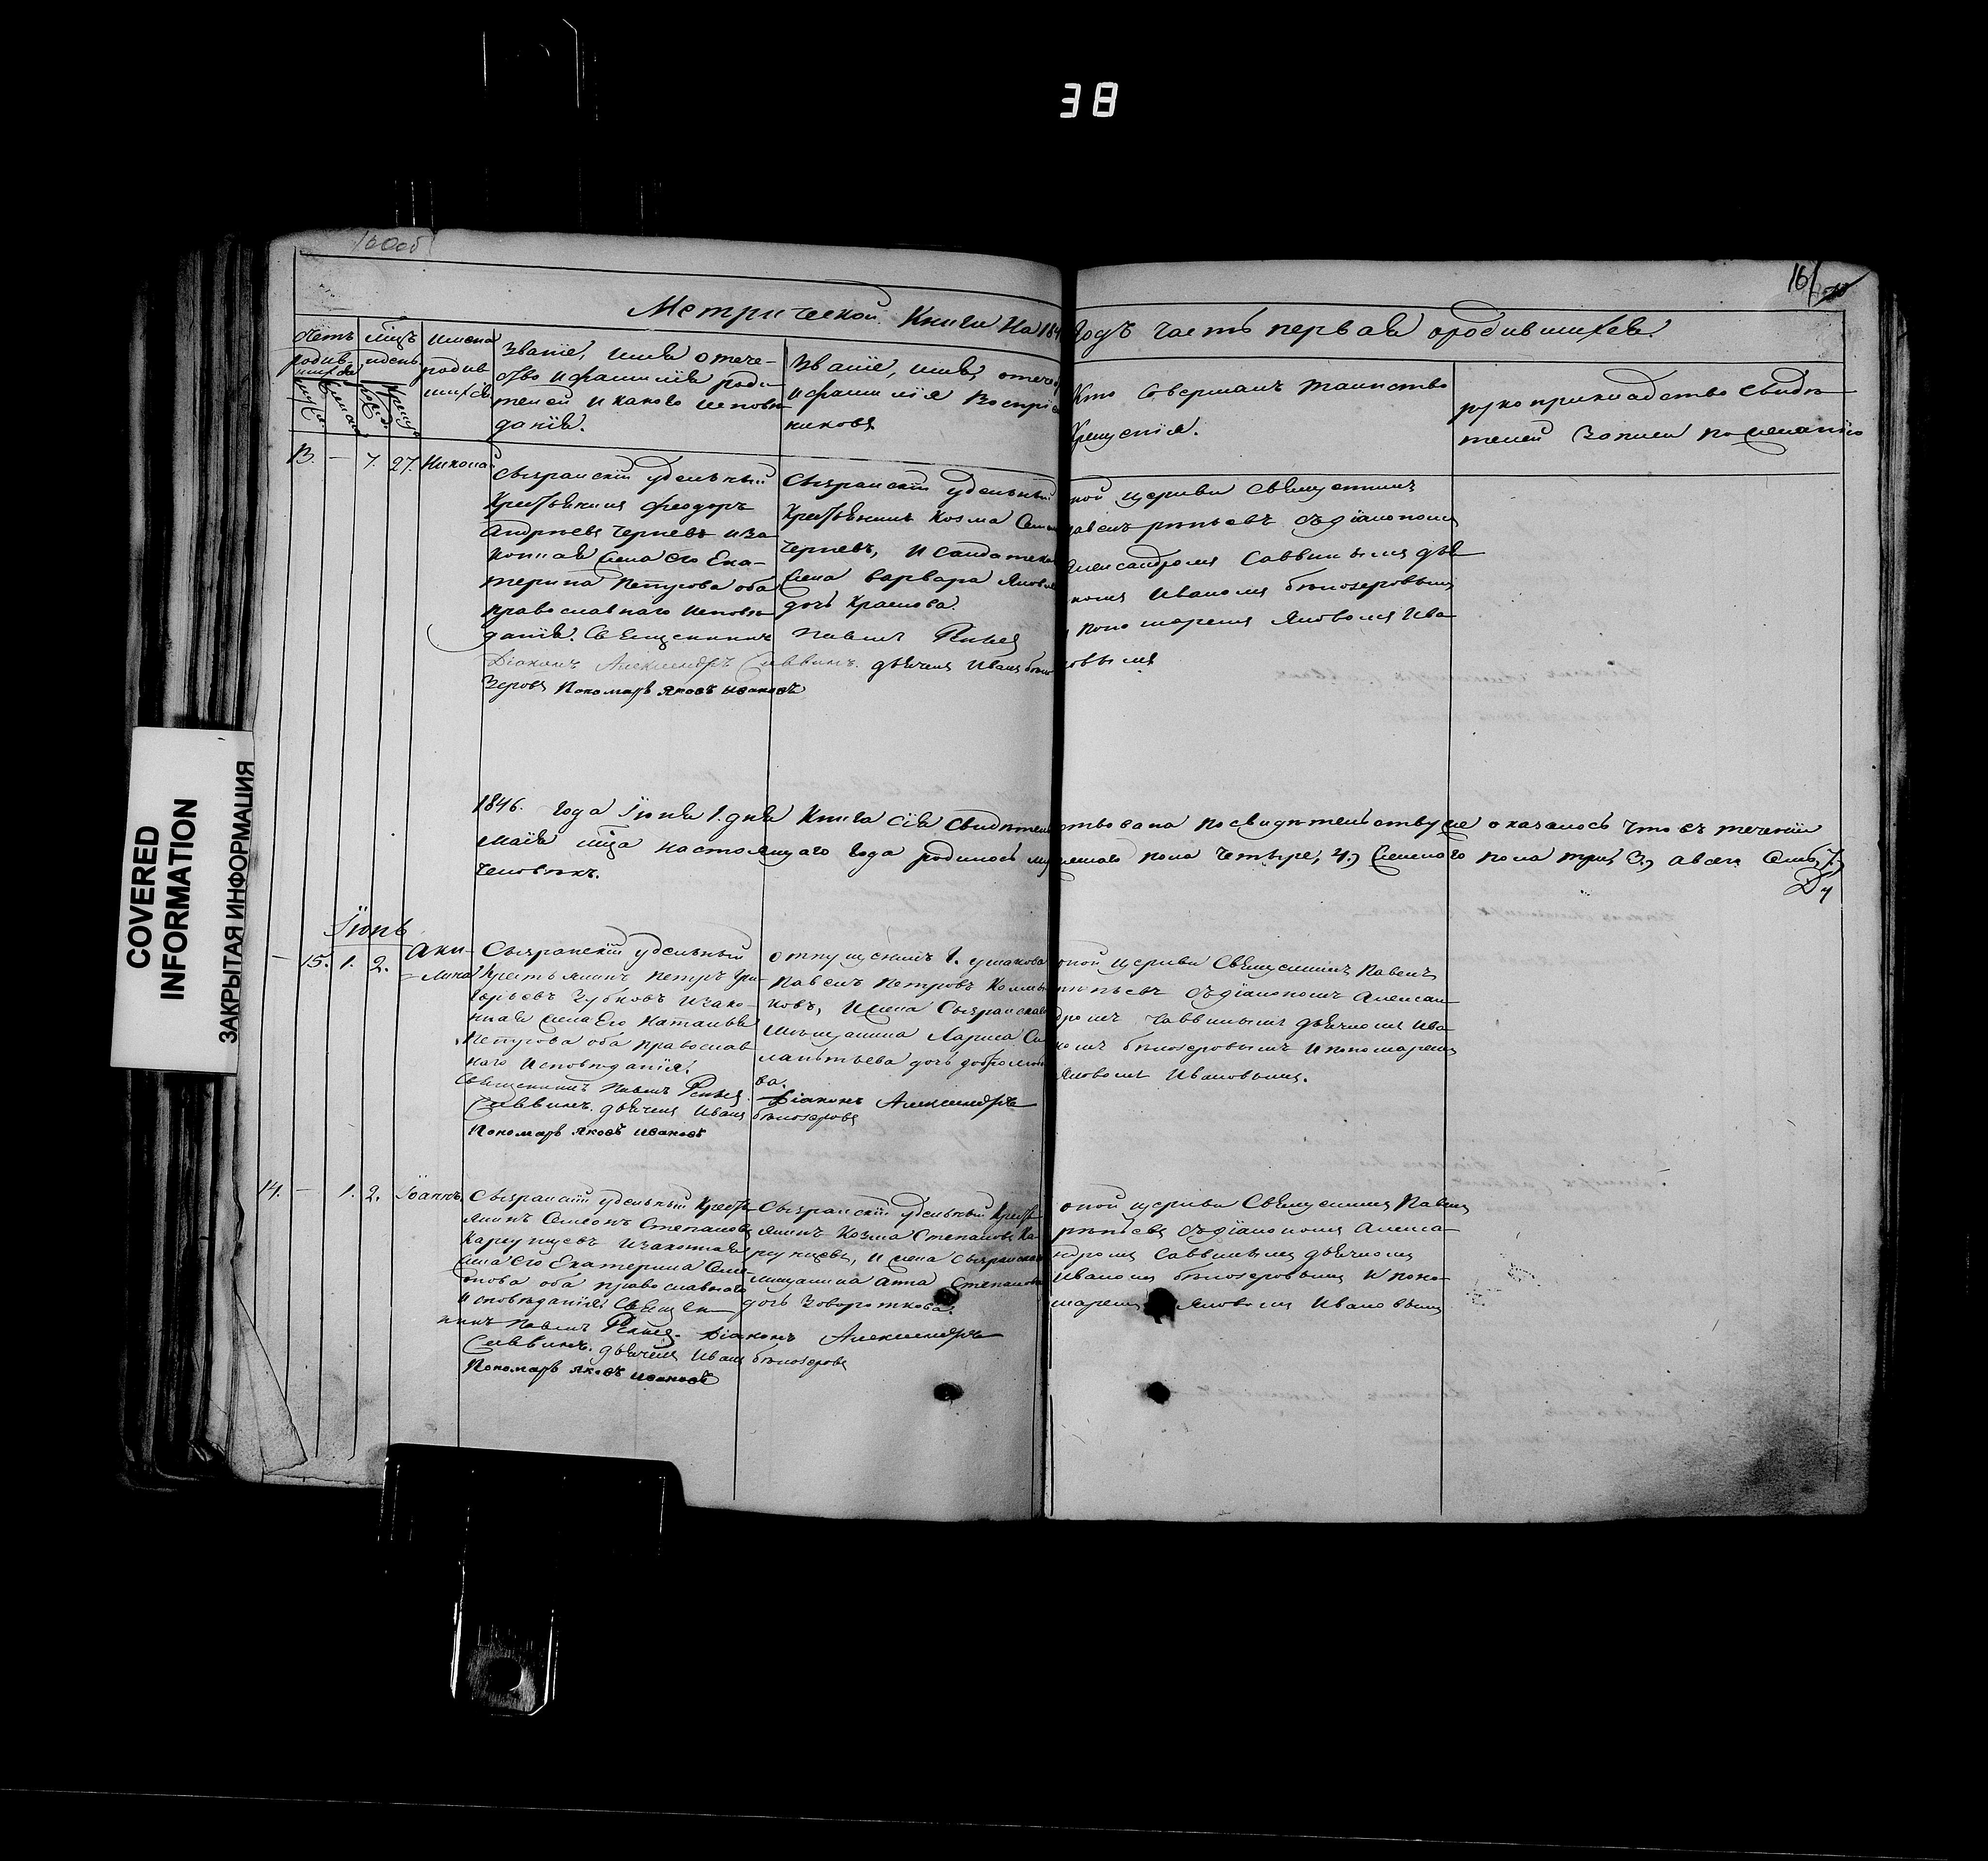 38
160об
16
Метрической Книги На 184 Годъ часть первая о родившихся.
Счетъ родив-
шихся
мѣцъ
и день
Имена
родив
шихся
Званіе, имя отече-
ство и фамилія роди
телей и какого исповѣ
данія.
Званіе, имя, отече
и фамилія воспріе
никовъ
Кто совершалъ таинство
Крещенія.
рукоприкладство свидѣ
телей записи по желанію
13. — 7. 27. Николай
Сызранскій удѣльный
Крестьянинъ Феодоръ
Андреевъ и за
конная жена его Ека-
терина Петрова оба
православнаго исповѣ
данія. Священникъ Павелъ
Діаконъ Александръ Саввинъ. дьячекъ Иванъ Бѣло
зеровъ Пономарь Яковъ Ивановъ
Сызранскій удѣльный
Крестьянинъ Козма
и солдатска
жена Варвара Яковле
дочь Краснова.
ной церкви Священникъ
съ діакономъ
Александромъ Саввинымъ дья
комъ Иваномъ Бѣлозеровымъ,
и пономаремъ Яковомъ Ива
новымъ
1846. года Іюня 1. дня Книга сія свидѣтельствована по свидѣтельству же оказалось что въ теченіи
Маія мѣца настоящаго года родилось мужескаго пола четыре, 4, женскаго пола три, 3, а всего семь, 7,
человѣкъ.
Іюнь
— 15. 1. 2. Аки-
лина
Сызранскій удѣльный
Крестьянинъ Петръ Гри-
горьевъ Зубковъ и зако-
нная жена его Наталья
Петрова оба православ
наго исповѣданія.
Священникъ Павелъ
Саввинъ. дьячекъ Иванъ Бѣлозеровъ
Пономарь Яковъ Ивановъ
отпущенникъ Г. Ушакова
Павелъ Петровъ
ковъ, и жена Сызранскаго
мѣщанина Лариса Си
лантьева дочь
ва.
Діаконъ Александръ
оной церкви Священникъ Павелъ
съ діакономъ Алексан
дромъ Саввинымъ дьячкомъ Ива
номъ Бѣлозеровымъ и пономаремъ
Яковомъ Ивановымъ.
14. — 1. 2. Іоаннъ
Сызранскій удѣльный Кресть
янинъ Семіонъ Степановъ
и законная
жена его Екатерина Семе
нова оба православнаго
исповѣданія Священ
никъ Павелъ
Діаконъ Александръ
Саввинъ. дьячекъ Иванъ Бѣлозеровъ
Пономарь Яковъ Ивановъ
Сызранскій удѣльный Кресть
янинъ Козма Степановъ Ка
и жена Сызранскаго
мѣщанина Анна Степанова
дочь Заворотнова.
оной церкви Священникъ Павелъ
съ діакономъ Алекса
ндромъ Саввинымъ дьячкомъ
Иваномъ Бѣлозеровымъ и поно
маремъ Яковомъ Ивановымъ
COVERED
INFORMATION
ЗАКРЫТАЯ ИНФОРМАЦИЯ